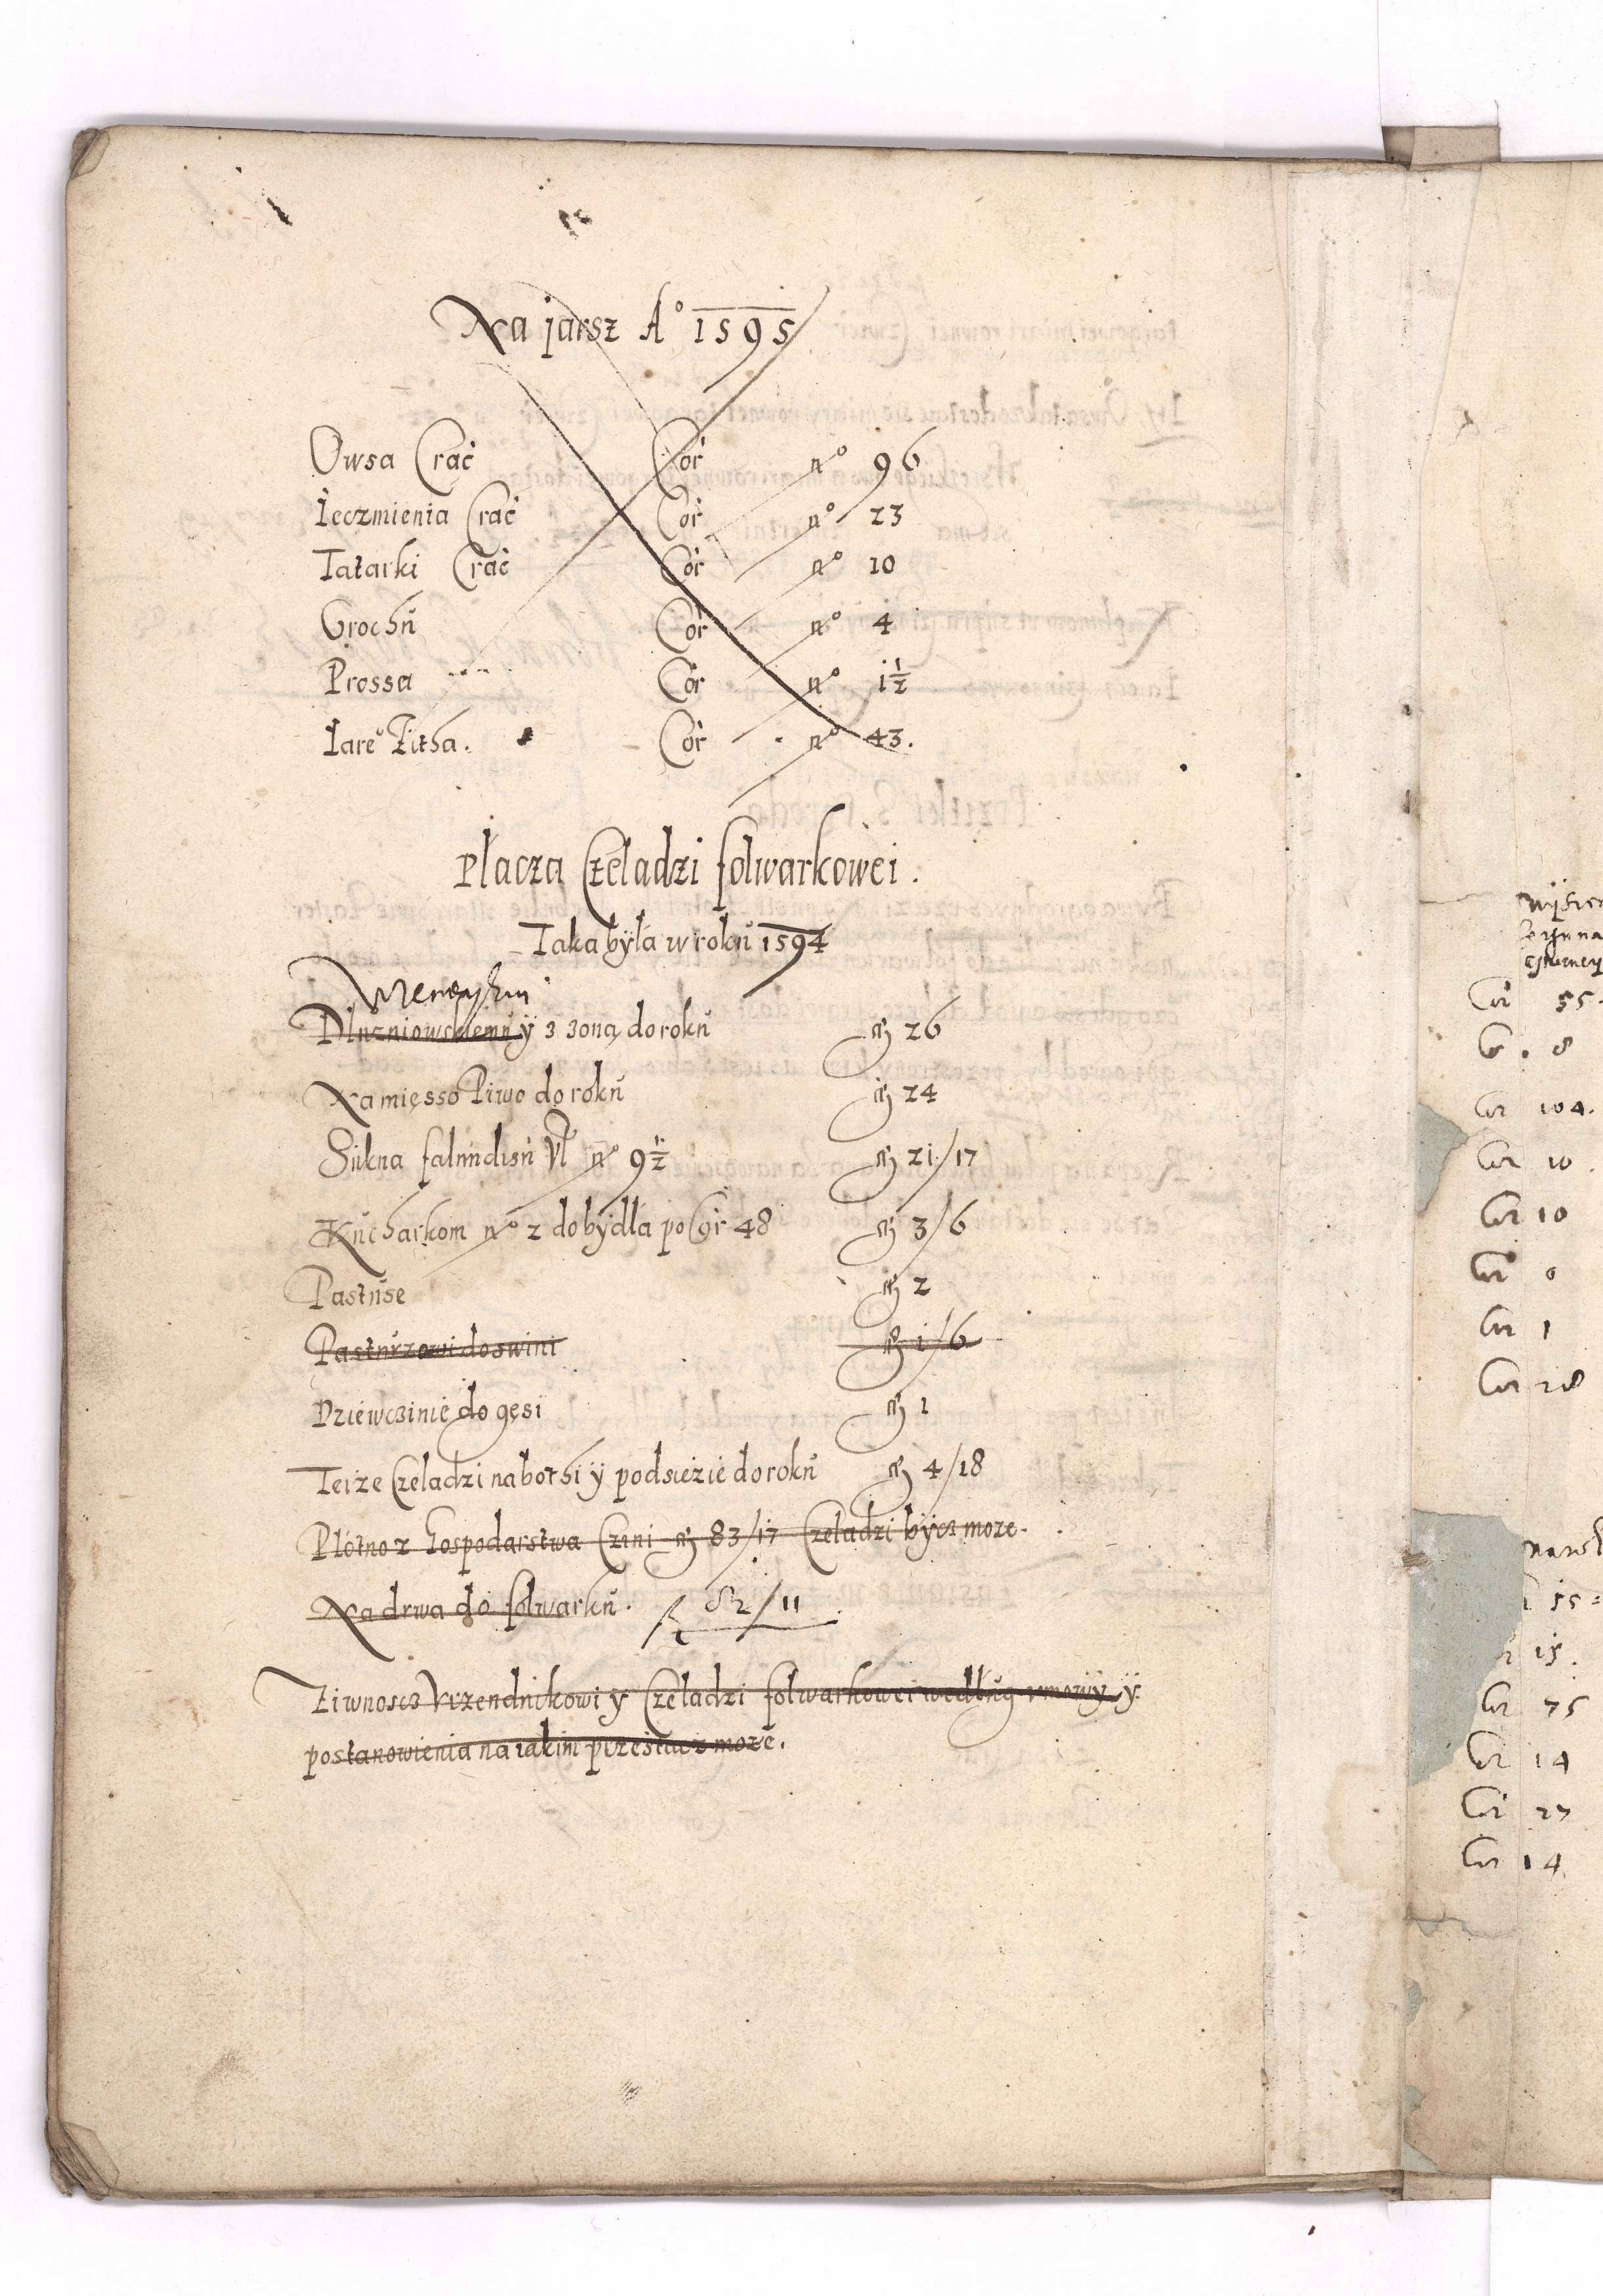 Na jarsz A° 1595
Owsa Crac Cor n° 96
Ieczmienia Crac Cor n° 23
Tatarki Crac Cor n° 10
Grochu Cor n° 4
Prossa Cor n° 1 1/2
Iare° Zitha. Cor n° 43.
Płacza Czeladzi folwarkowei.
Taka była w roku 1594
Dluzniowskiemu ÿ z zoną do roku 26
Na mięsso Piwo do roku 24
Sukna falundisu Vl n° 9 1/2 21/17
Kucharkom n° 2 do bydła po Gr 48 3/6
Pastuse 2
Pasturzowi do swini 1/6
Dziewczinie do gęsi 1
Teize Czeladzi na bothi ÿ podscizie do roku 4/18
Płotno z Gospodarstwa Czini 83/17 Czeladzi bycz moze.
Na drwa do folwarku. 82/11
Ziwnoscz Vrzendnikowi y Czeladzi folwarkowei według vmowÿ y
postanowienia na iakim przestacz moze.
Cor 55.
8
Cor 104.
Cor 10.
Cor 10
Cor 0
Cor 1
Cor 28
55
15.
Cor 75
Cor 14
Cor 27
Cor 14